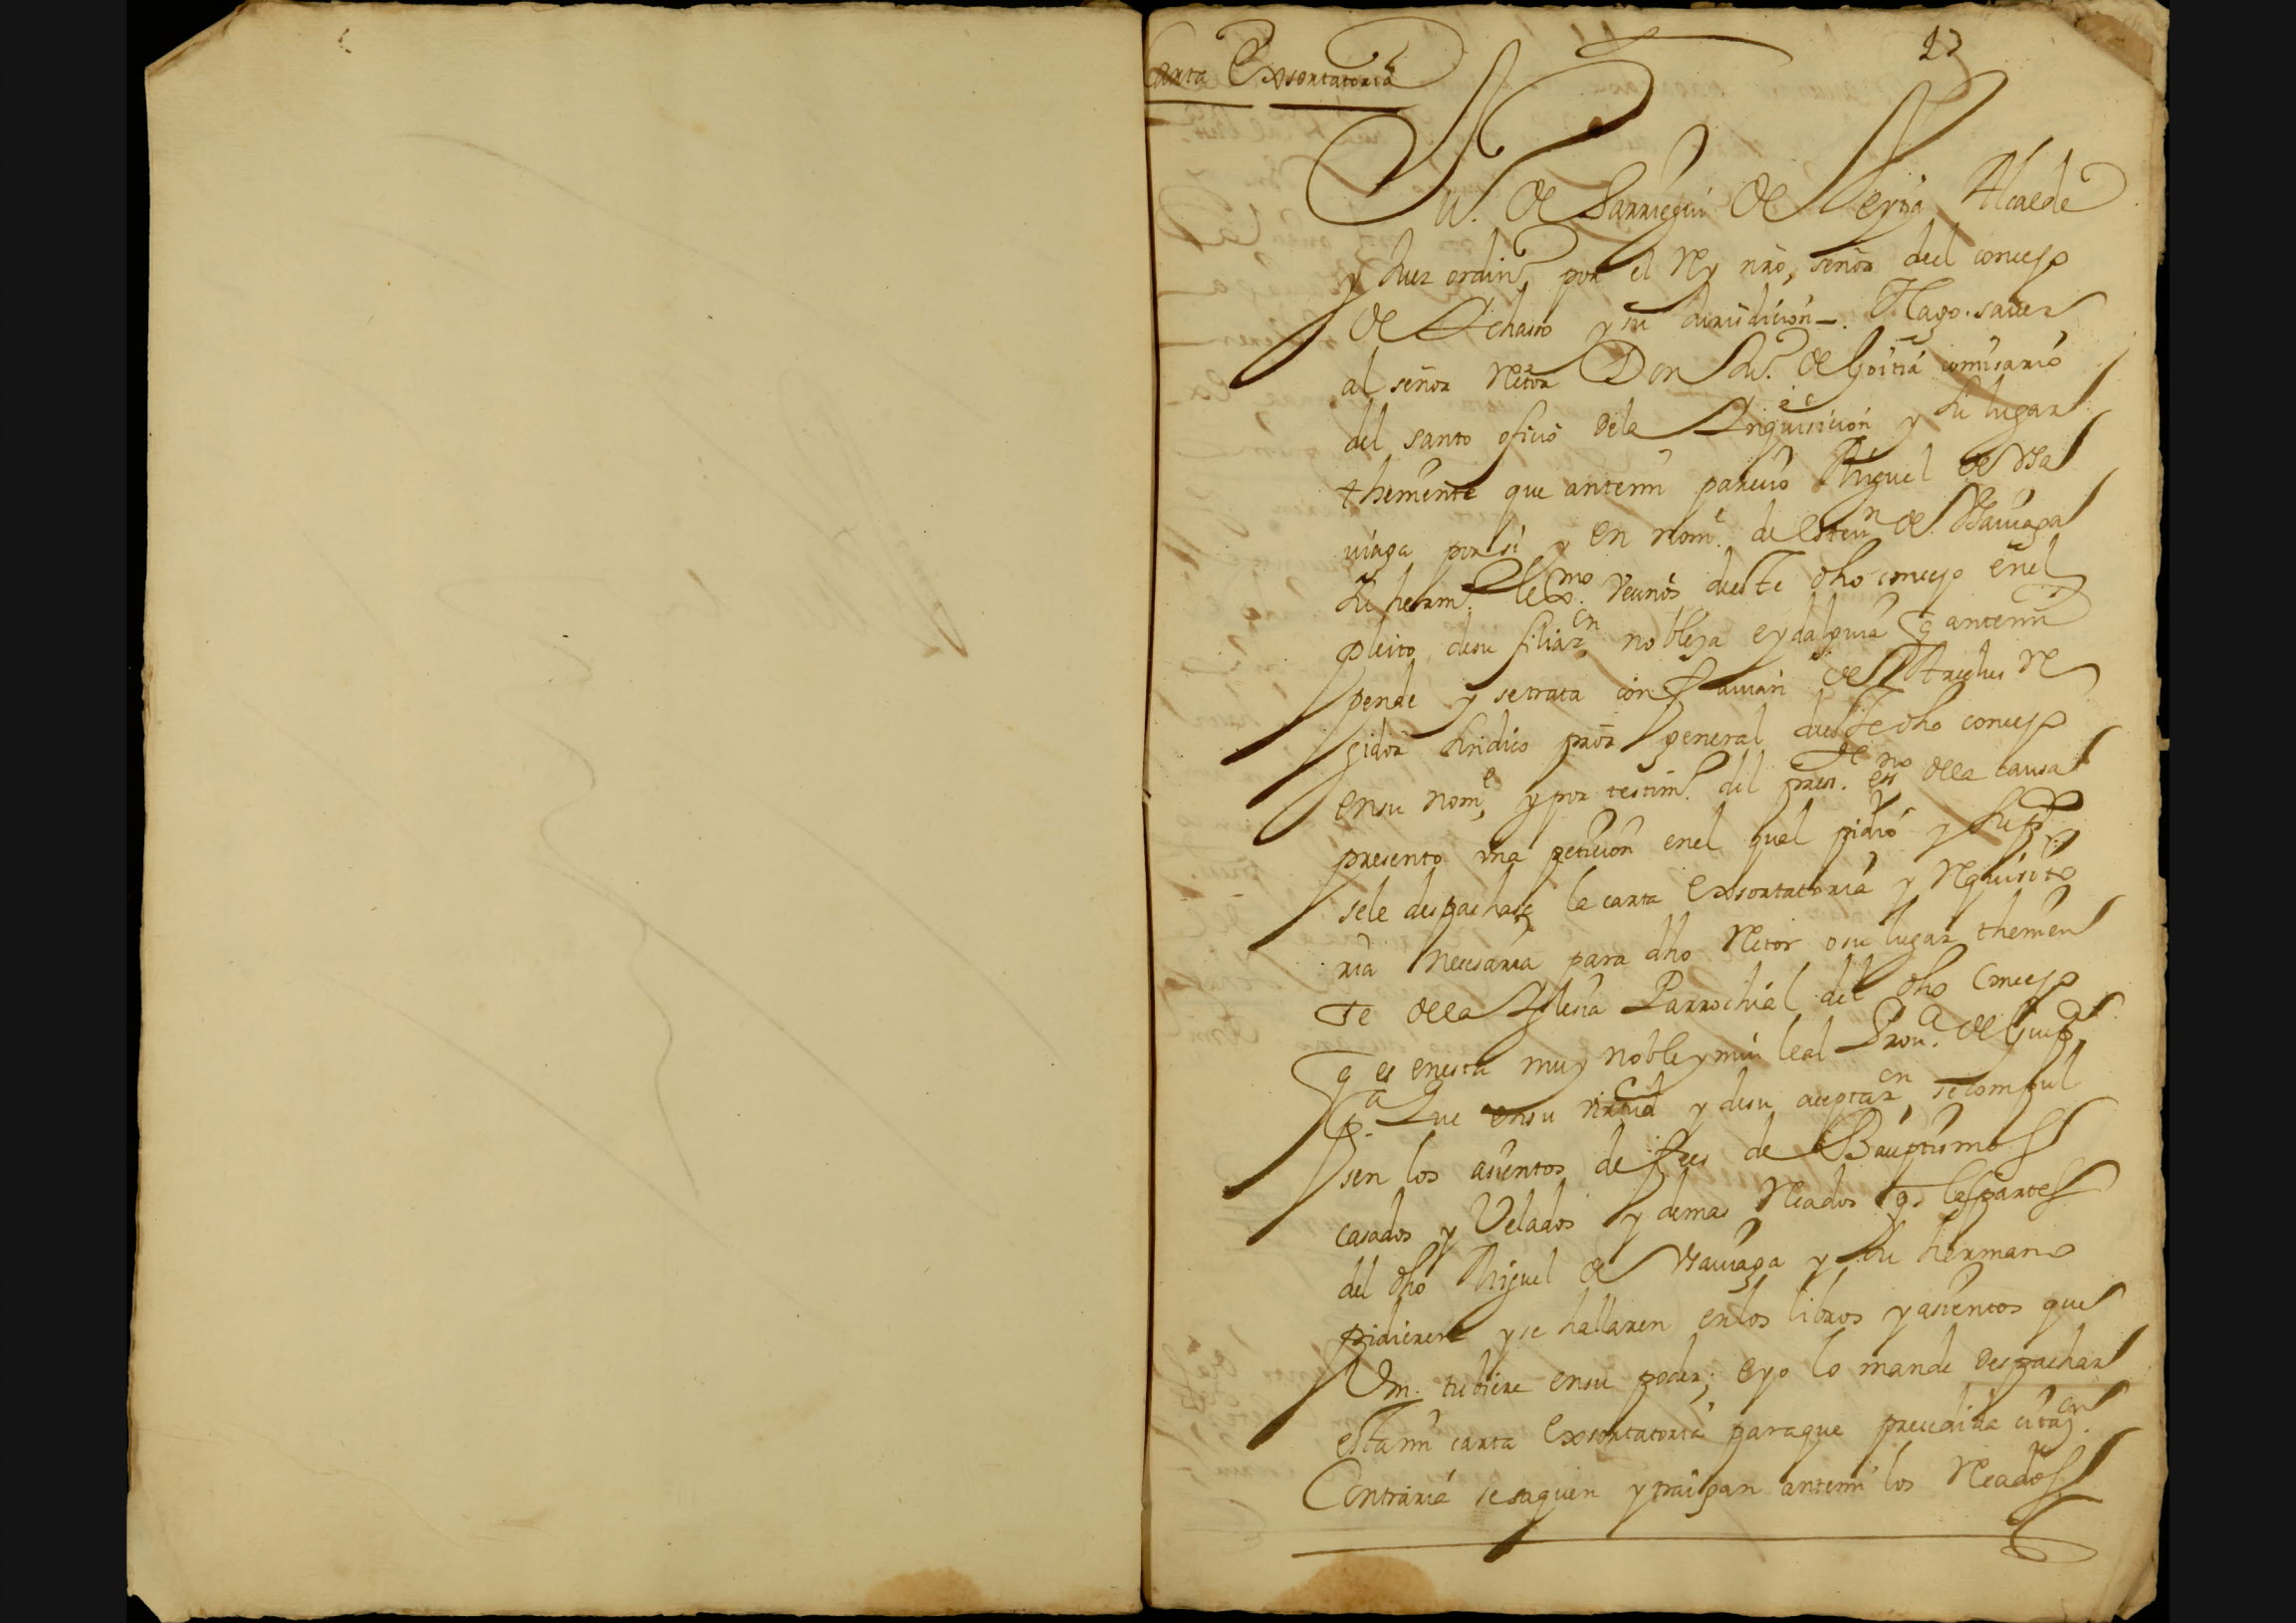 Carta Exsortatoria
23
Ju.º de Sarriegui de Leyba Alcalde
y Juez ordin.º por el Rey nr̃o, señor del concejo
de Achasso y su Jurisdicion. Hago saver
al señor Retor Don Ju.º de Goitia comisario
del santo oficio dela Inquisicion y su lugar
theniente que antemi parecio Miguel de Vsa
uiaga por si y en nom.e de esteu.n de Vsauiaga
su herm.no lex.mo Vecinos deeste dho concejo enel
pleito desu filiaz.cn nobleza eydalguia q antemi
pende y setrata con de Re
gidor sindico pror̃ general deeste dho concejo
ensu nom.e, y por testim.º del pres.te ess.no della causa
presento vna peticion enel qual pidio y sup.co
sele despachase la carta Exsortatoria y Requisito
ria necesaria para dho Retor osu lugar thenien
te della Iglesia Parrochial del dho Concejo
q es enesta muy noble y mui leal Prou.a de Guip.a
P.a Que ensu virtud y desu aceptaz.cn secompul
sen los asientos de fees de Bauptismos
casados y Velados y demas Recados q. las partes
del dho Miguel de Vsauiaga y su hermano
pidieren y se hallaren enlos libros y asientos que
Vm. tubiere ensu poder; eyo lo mande Despachar
estami carta Exsortatoria paraque precedida citaz.cn
Contraria sesaquen y traigan antemi los Recados